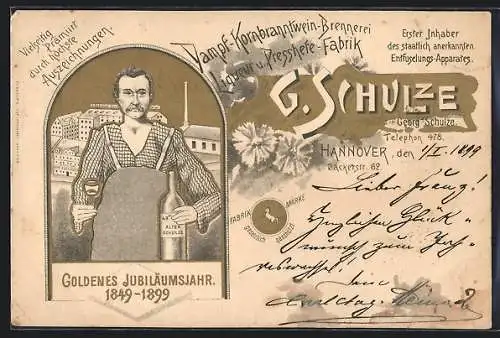 Vielseitig
Prämiirt
durch höchste
Auszeichnungen
Dampf-Kornbranntwein-Brennerei
Liqueur u. Presshefe-Fabrik
Erster Inhaber
des staatlich anerkannten
Entfuselungs-Apparates.
G. SCHULZE
Georg Schulze.
Telephon 478.
HANNOVER, den 1/I. 1899
62
FABRIK MARKE
ALTER
SCHULZE
GOLDENES JUBILÄUMSJAHR.
1849-1899
Lieber
Herzlichen Glück-
wunsch zum Jah-
reswechsel!